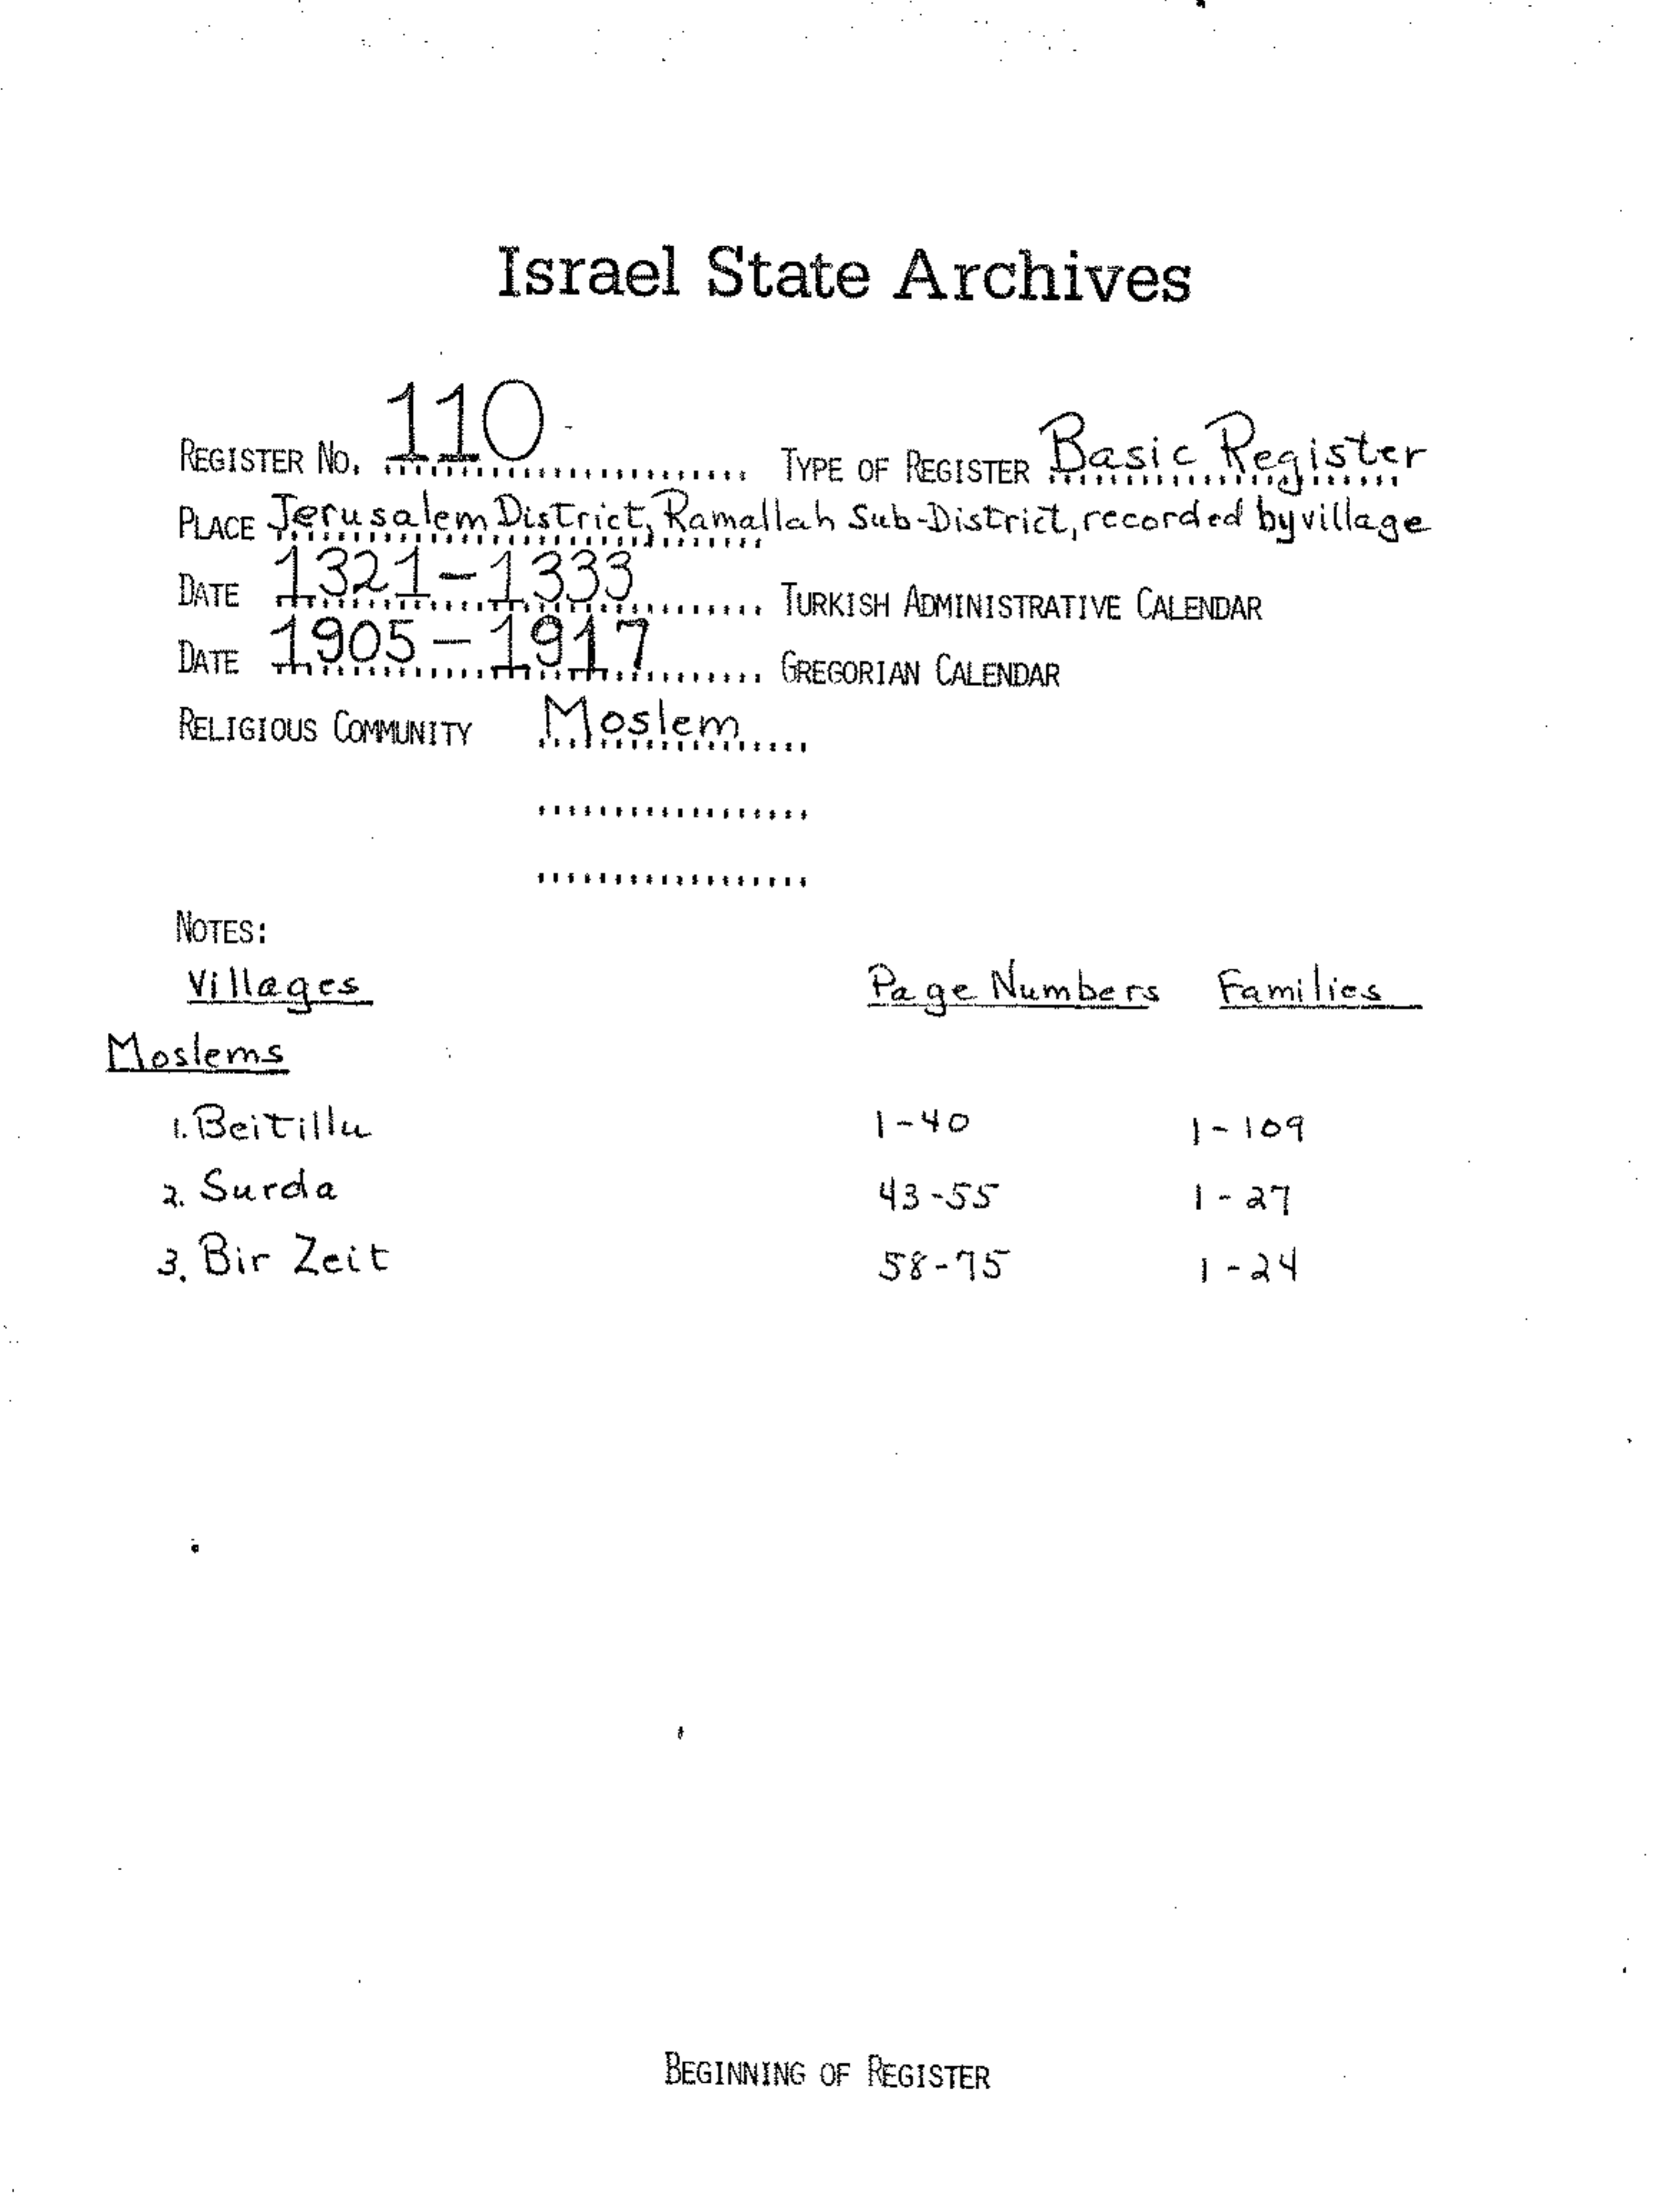 Israel State Archives
REGISTER NO. 110 TYPE OF REGISTER Basic Register
PLACE Jerusalem District, Ramallah Sub-District, recorded by village
DATE 1321-1333 TURKISH ADMINISTRATIVE CALENDAR
DATE 1905-1917 GREGORIAN CALENDAR
RELIGIOUS COMMUNITY Moslem
NOTES:
Villages Page Numbers Families
Moslems
1. Beitillu 1-40 1-109
2. Surda 43-55 1-27
3. Bir Zeit 58-75 1-24
BEGINNING OF REGISTER